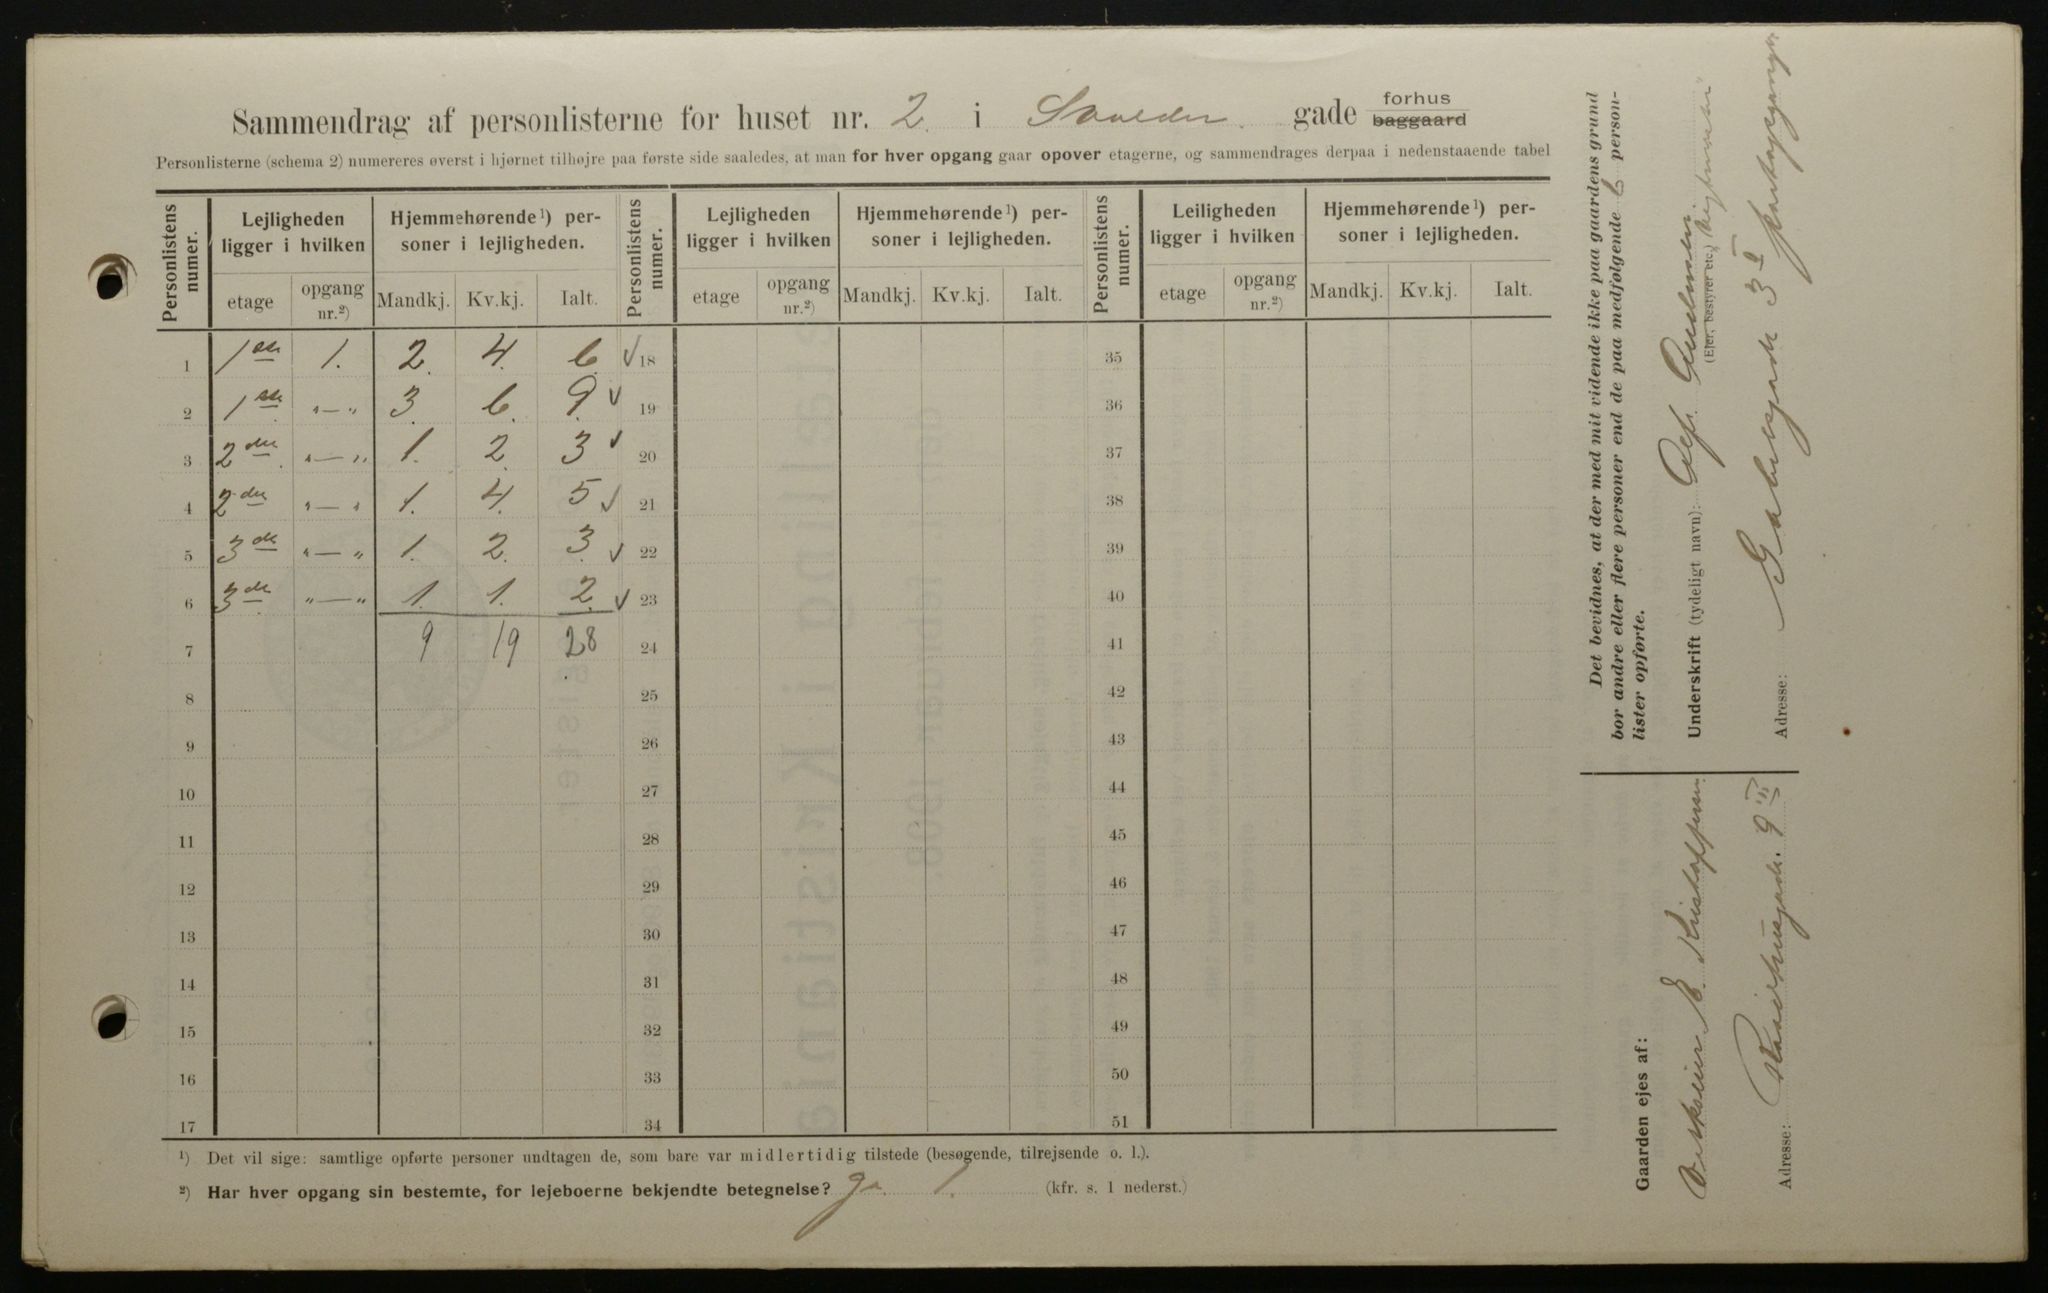 Sammendrag af personlisterne for huset nr. 2. i gade forhus baggaard
Personlisterne (schema 2) numereres øverst i hjørnet tilhøjre paa første side saaledes, at man for hver opgang gaar opover etagerne, og sammendrages derpaa i nedenstaaende tabel
Personlistens numer. Lejligheden ligger i hvilken Hjemmehørende¹) personer i lejligheden. Personlistens numer. Lejligheden ligger i hvilken Hjemmehørende¹) personer i lejligheden. Personlistens numer. Leiligheden ligger i hvilken Hjemmehørende¹) personer i lejligheden.
etage opgang nr.²) Mandkj. Kv.kj. Ialt. etage opgang nr.²) Mandkj. Kv.kj. Ialt. etage opgang nr.²) Mandkj. Kv.kj. Ialt.
1 1ste 1. 2. 4. 6. ✓ 18 35
2 1ste "—" 3. 6. 9. ✓ 19 36
3 2den "—" 1. 2. 3 ✓ 20 37
4 2den "—" 1. 4. 5 ✓ 21 38
5 3de "—" 1. 2. 3. ✓ 22 39
6 3de "—" 1. 1. 2. ✓ 23 40
7 9 19 28 24 41
8 25 42
9 26 43
10 27 44
11 28 45
12 29 46
13 30 47
14 31 48
15 32 49
16 33 50
17 34 51
¹) Det vil sige: samtlige opførte personer undtagen de, som bare var midlertidig tilstede (besøgende, tilrejsende o. l.).
²) Har hver opgang sin bestemte, for lejeboerne bekjendte betegnelse? Ja 1. (kfr. s. 1 nederst.)
Det bevidnes, at der med mit vidende ikke paa gaardens grund
bor andre eller flere personer end de paa medfølgende 6 person-
lister opførte.
Underskrift (tydeligt navn):
(Ejer, bestyrer etc.)
Adresse: 3 I
Gaarden ejes af:
E. Kristoffersen
Adresse: 9 III